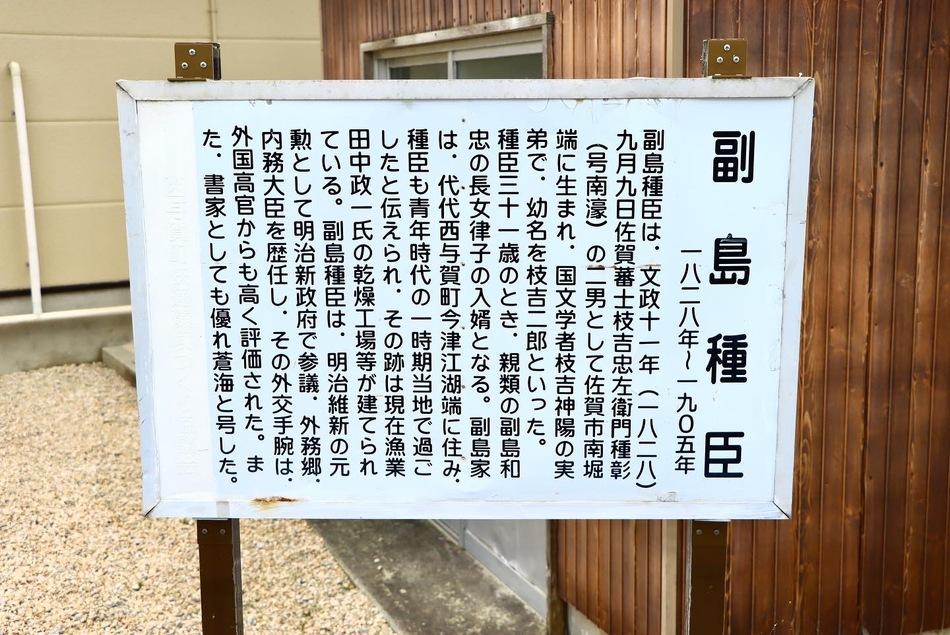 副島種臣
一八二八年～一九〇五年
副島種臣は、文政十一年（一八二八）
九月九日佐賀蕃士枝吉忠左衛門種彰
（号南濠）の二男として佐賀市南堀
端に生まれ、国文学者枝吉神陽の実
弟で、幼名を枝吉二郎といった。
種臣三十一歳のとき、親類の副島和
忠の長女律子の入婿となる。副島家
は、代代西与賀町今津江湖端に住み、
種臣も青年時代の一時期当地で過ご
したと伝えられ、その跡は現在漁業
田中政一氏の乾燥工場等が建てられ
ている。副島種臣は、明治維新の元
勲として明治新政府で参議、外務郷、
内務大臣を歴任し、その外交手腕は、
外国高官からも高く評価された。ま
た、書家としても優れ蒼海と号した。